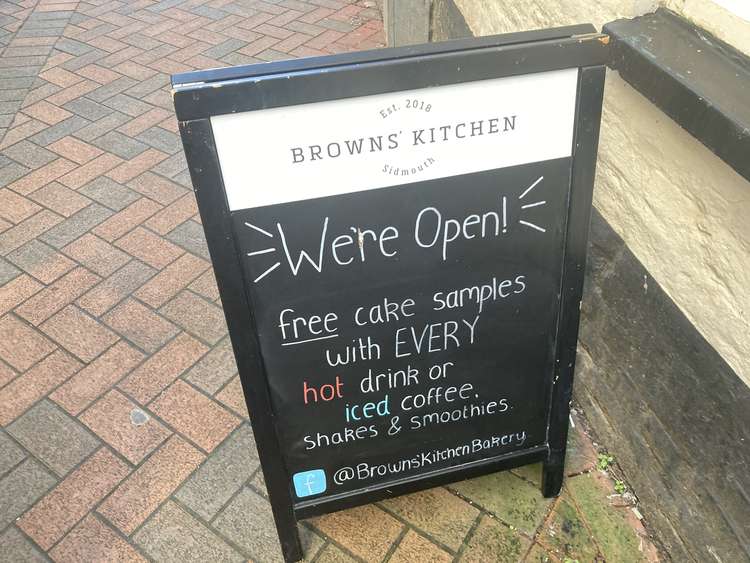 Est. 2018
BROWNS' KITCHEN
Sidmouth
We're Open!
free cake samples
with EVERY
hot drink or
iced coffee,
shakes & smoothies.
f @Browns'KitchenBakery